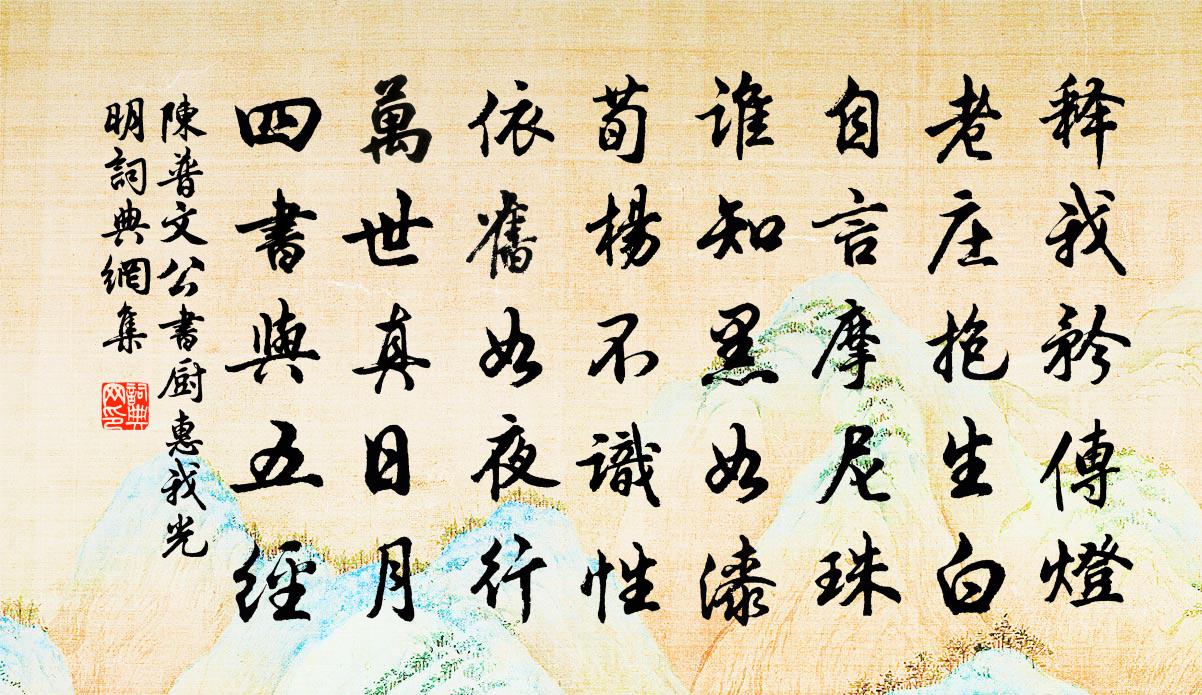 释我矜傳燈
老庄抱生白
自言摩尼珠
誰知黑如漆
荀楊不識性
依舊如夜行
萬世真日月
四書與五經
陳普文公書厨惠我光
明詞典網集
詞典
网印